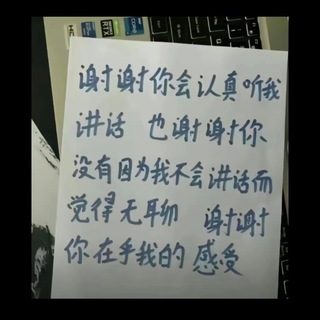 谢谢你会认真听我
讲话 也谢谢你
没有因为我不会讲话而
觉得无聊 谢谢
你在乎我的 感受